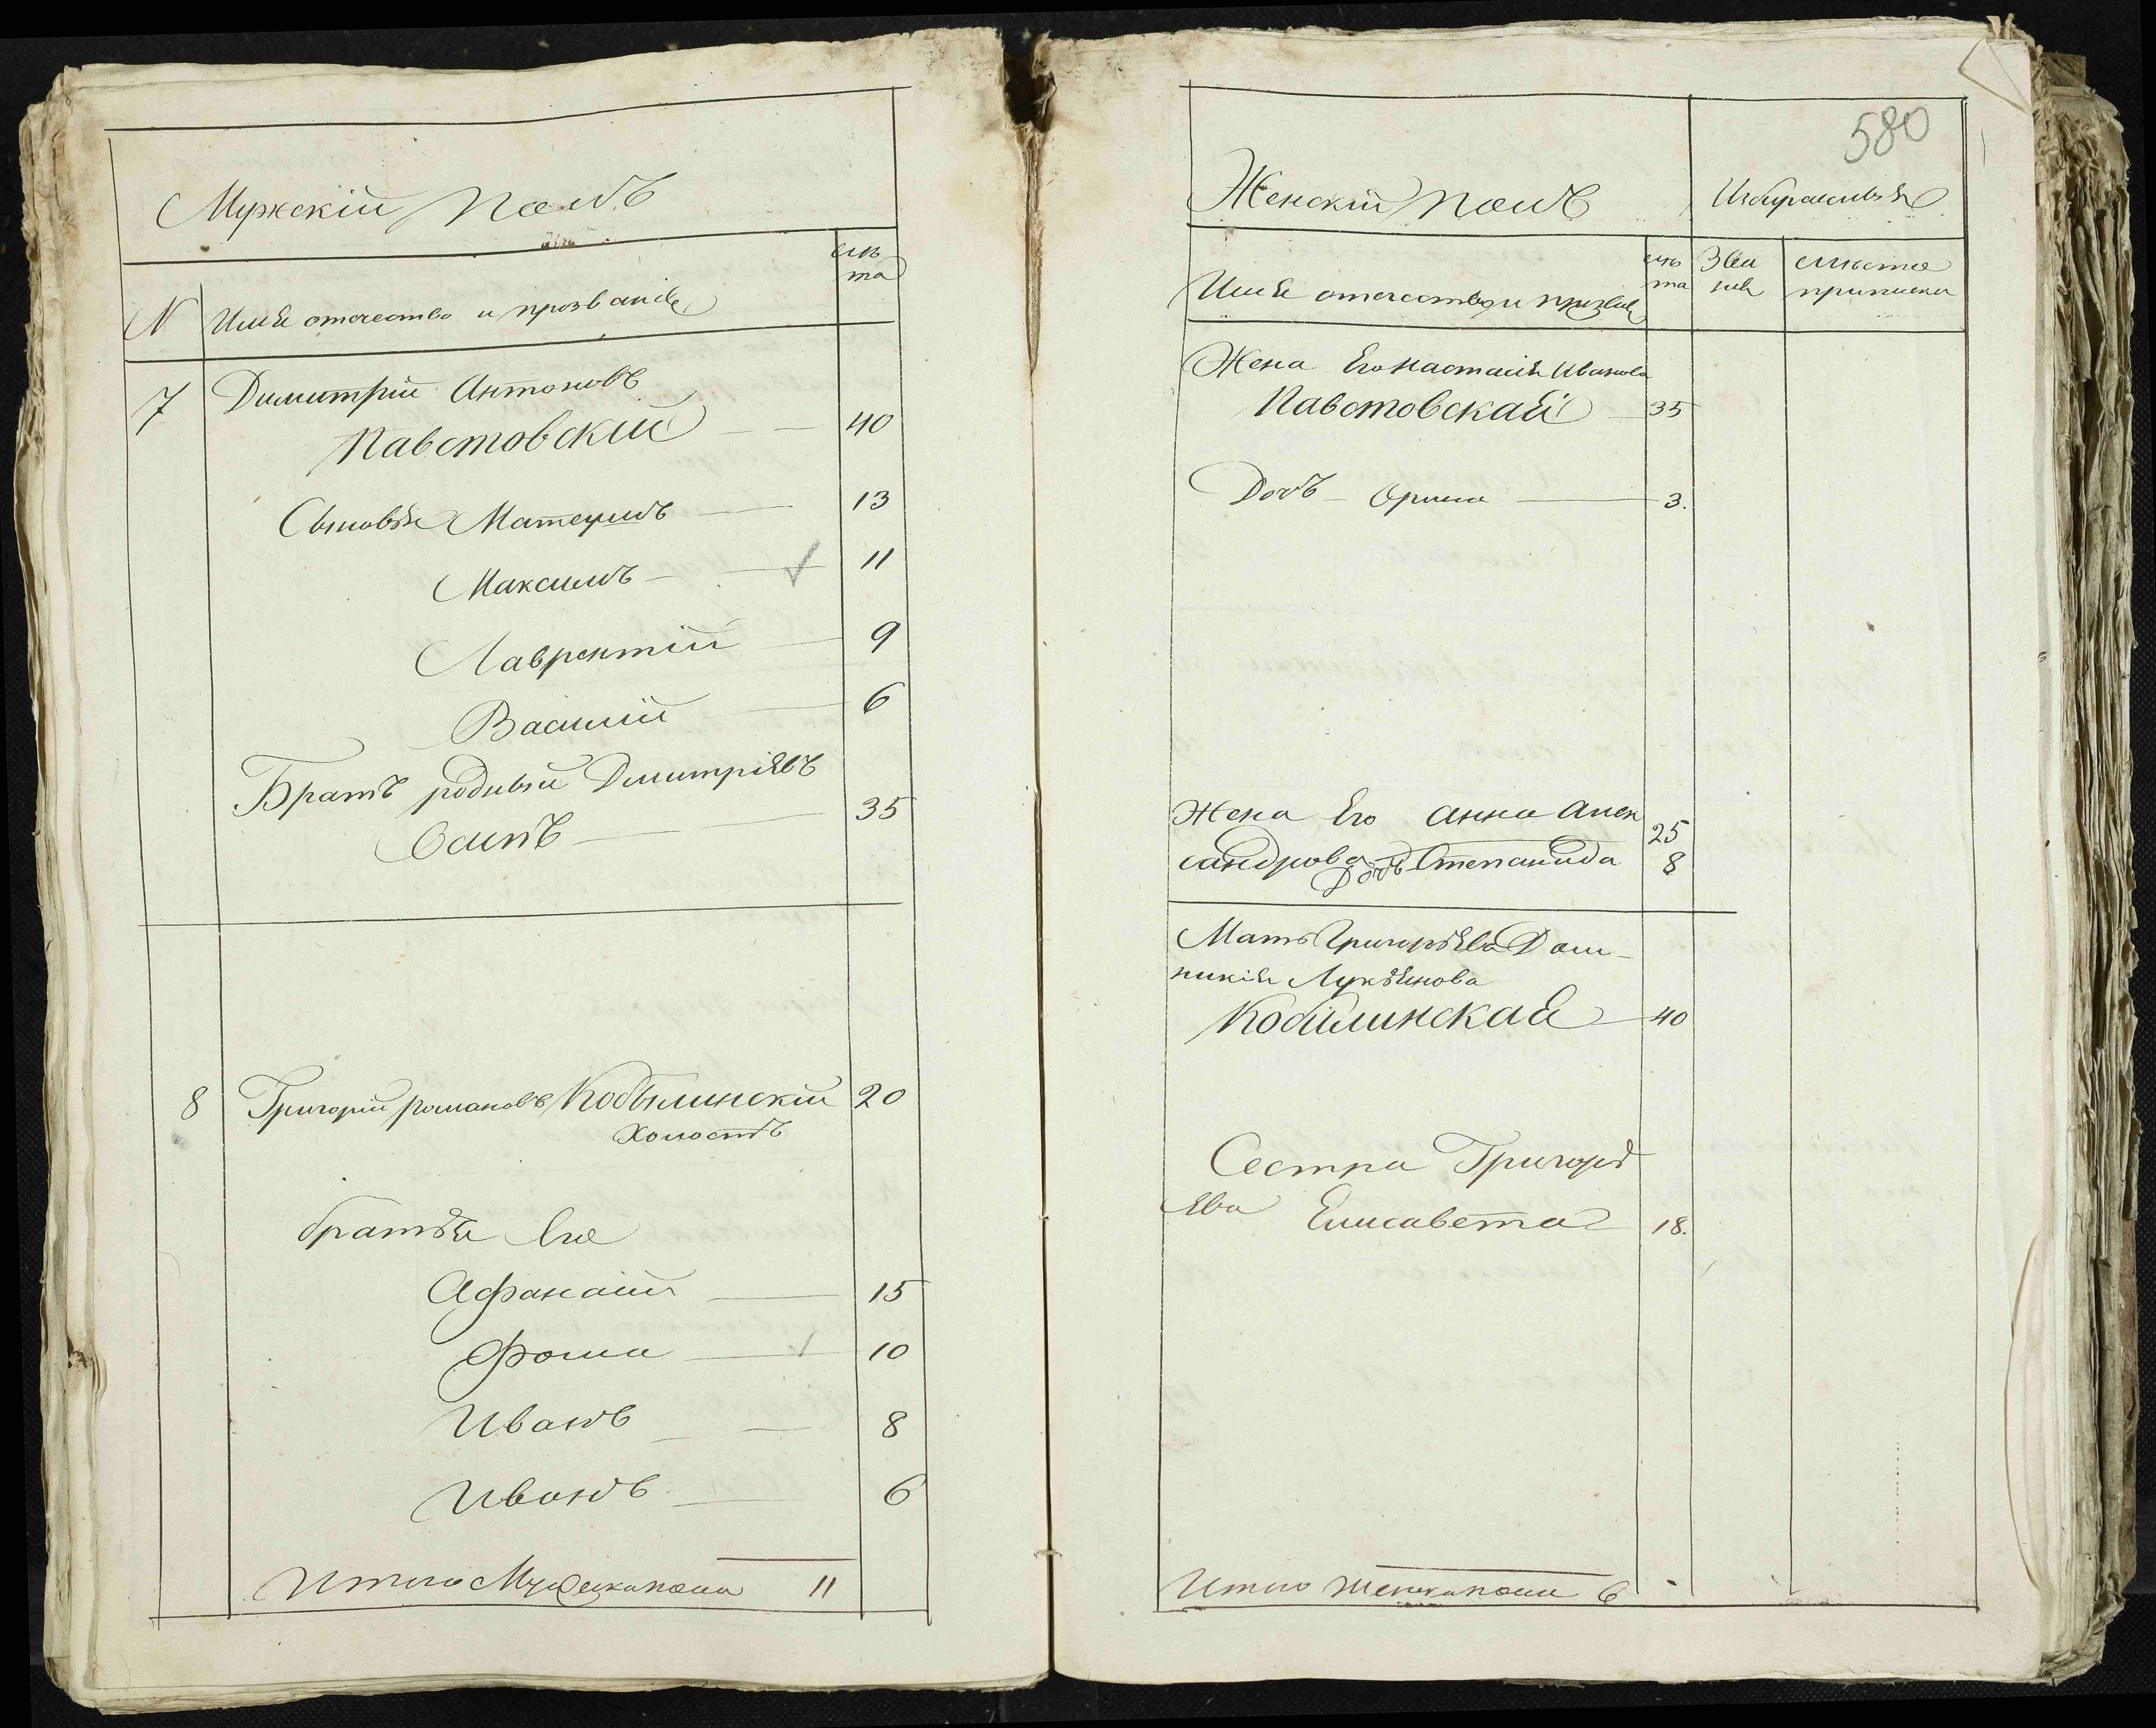 Мужскій Полъ
лѣ
та
N Имя отечество и прозваніе
7 Димитрій Антоновъ
Павстовскій 40
Сыновья Матеушъ 13
Максимъ 11
Лаврентій 9
Василій 6
Братъ родный Димитріявъ
Осипъ 35
8 Григорій Романовъ Кобылинскій 20
холостъ
братья Его
Афанасій 15
Фома 10
Иванъ 8
Иванъ 6
Итого Мужеска пола 11
580
Женскій Полъ
лѣ
та
Имя отечество и прозваніе
Зва
ніе
мѣсто
приписки
Жена Его Настасія Иванова
Павстовская 35
Дочь Орина 3.
Жена Его Анна Алек
сандрова 25
Дочь Степанида 8
Мать Григорьява Дом-
никія Лукьянова
Кобылинская 40
Сестра Григорь
ява Елисавета 18.
Итого женска пола 6